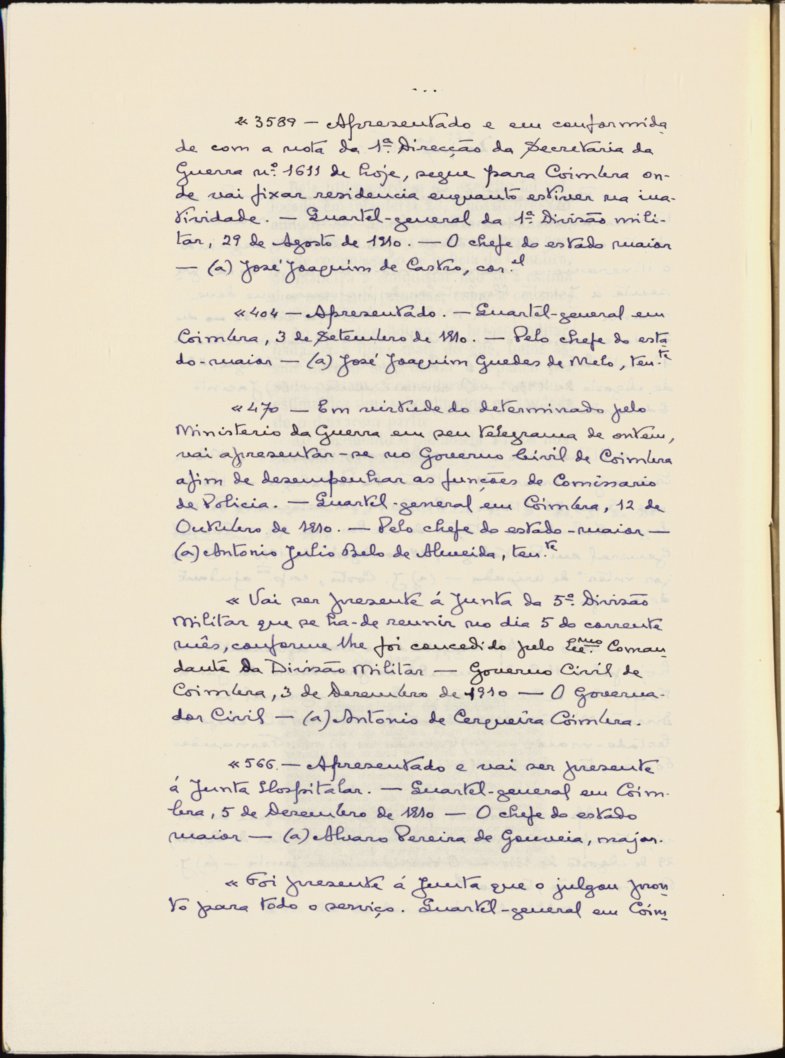 ...
« 3589 — Apresentado e em conformida
de com a nota da 1ª Direcção da Secretaria da
Guerra nº 1611 de hoje, segue para Coimbra on-
de vai fixar residencia enquanto estiver na ina-
tividade. — Quartel-general da 1ª Divisão mili-
tar, 29 de Agosto de 1910. — O chefe do estado maior
— (a) José Joaquim de Castro, cor.el
« 404 — Apresentado. — Quartel-general em
Coimbra, 3 de Setembro de 1910. — Pelo chefe do esta
do-maior — (a) José Joaquim Guedes de Melo, ten.te
« 470 — Em virtude do determinado pelo
Ministerio da Guerra em seu telegrama de ontem,
vai apresentar-se no Governo Civil de Coimbra
afim de desempenhar as funções de Comissario
de Policia. — Quartel-general em Coimbra, 12 de
Outubro de 1910. — Pelo chefe do estado-maior —
(a) Antonio Julio Belo de Almeida, ten.te
« Vai ser presente á Junta da 5ª Divisão
Militar que se ha-de reunir no dia 5 do corrente
mês, conforme lhe foi concedido pelo Exmo. Coman
dante da Divisão Militar — Governo Civil de
Coimbra, 3 de Dezembro de 1910 — O Governa-
dor Civil — (a) Antonio de Cerqueira Coimbra.
« 566. — Apresentado e vai ser presente
á Junta Hospitalar. — Quartel-general em Coim-
bra, 5 de Dezembro de 1910 — O chefe do estado
maior — (a) Alvaro Pereira de Gouveia, major.
« Foi presente á Junta que o julgou pron
to para todo o serviço. Quartel-general em Coim